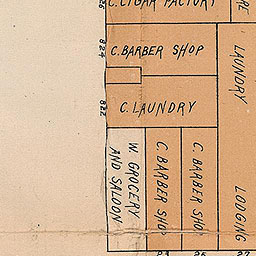 C. CIGAR FACTORY
824
C. BARBER SHOP
822
C. LAUNDRY
LAUNDRY
LODGING
W. GROCERY
AND SALOON
C. BARBER SHOP
C. BARBER SHOP
25
27